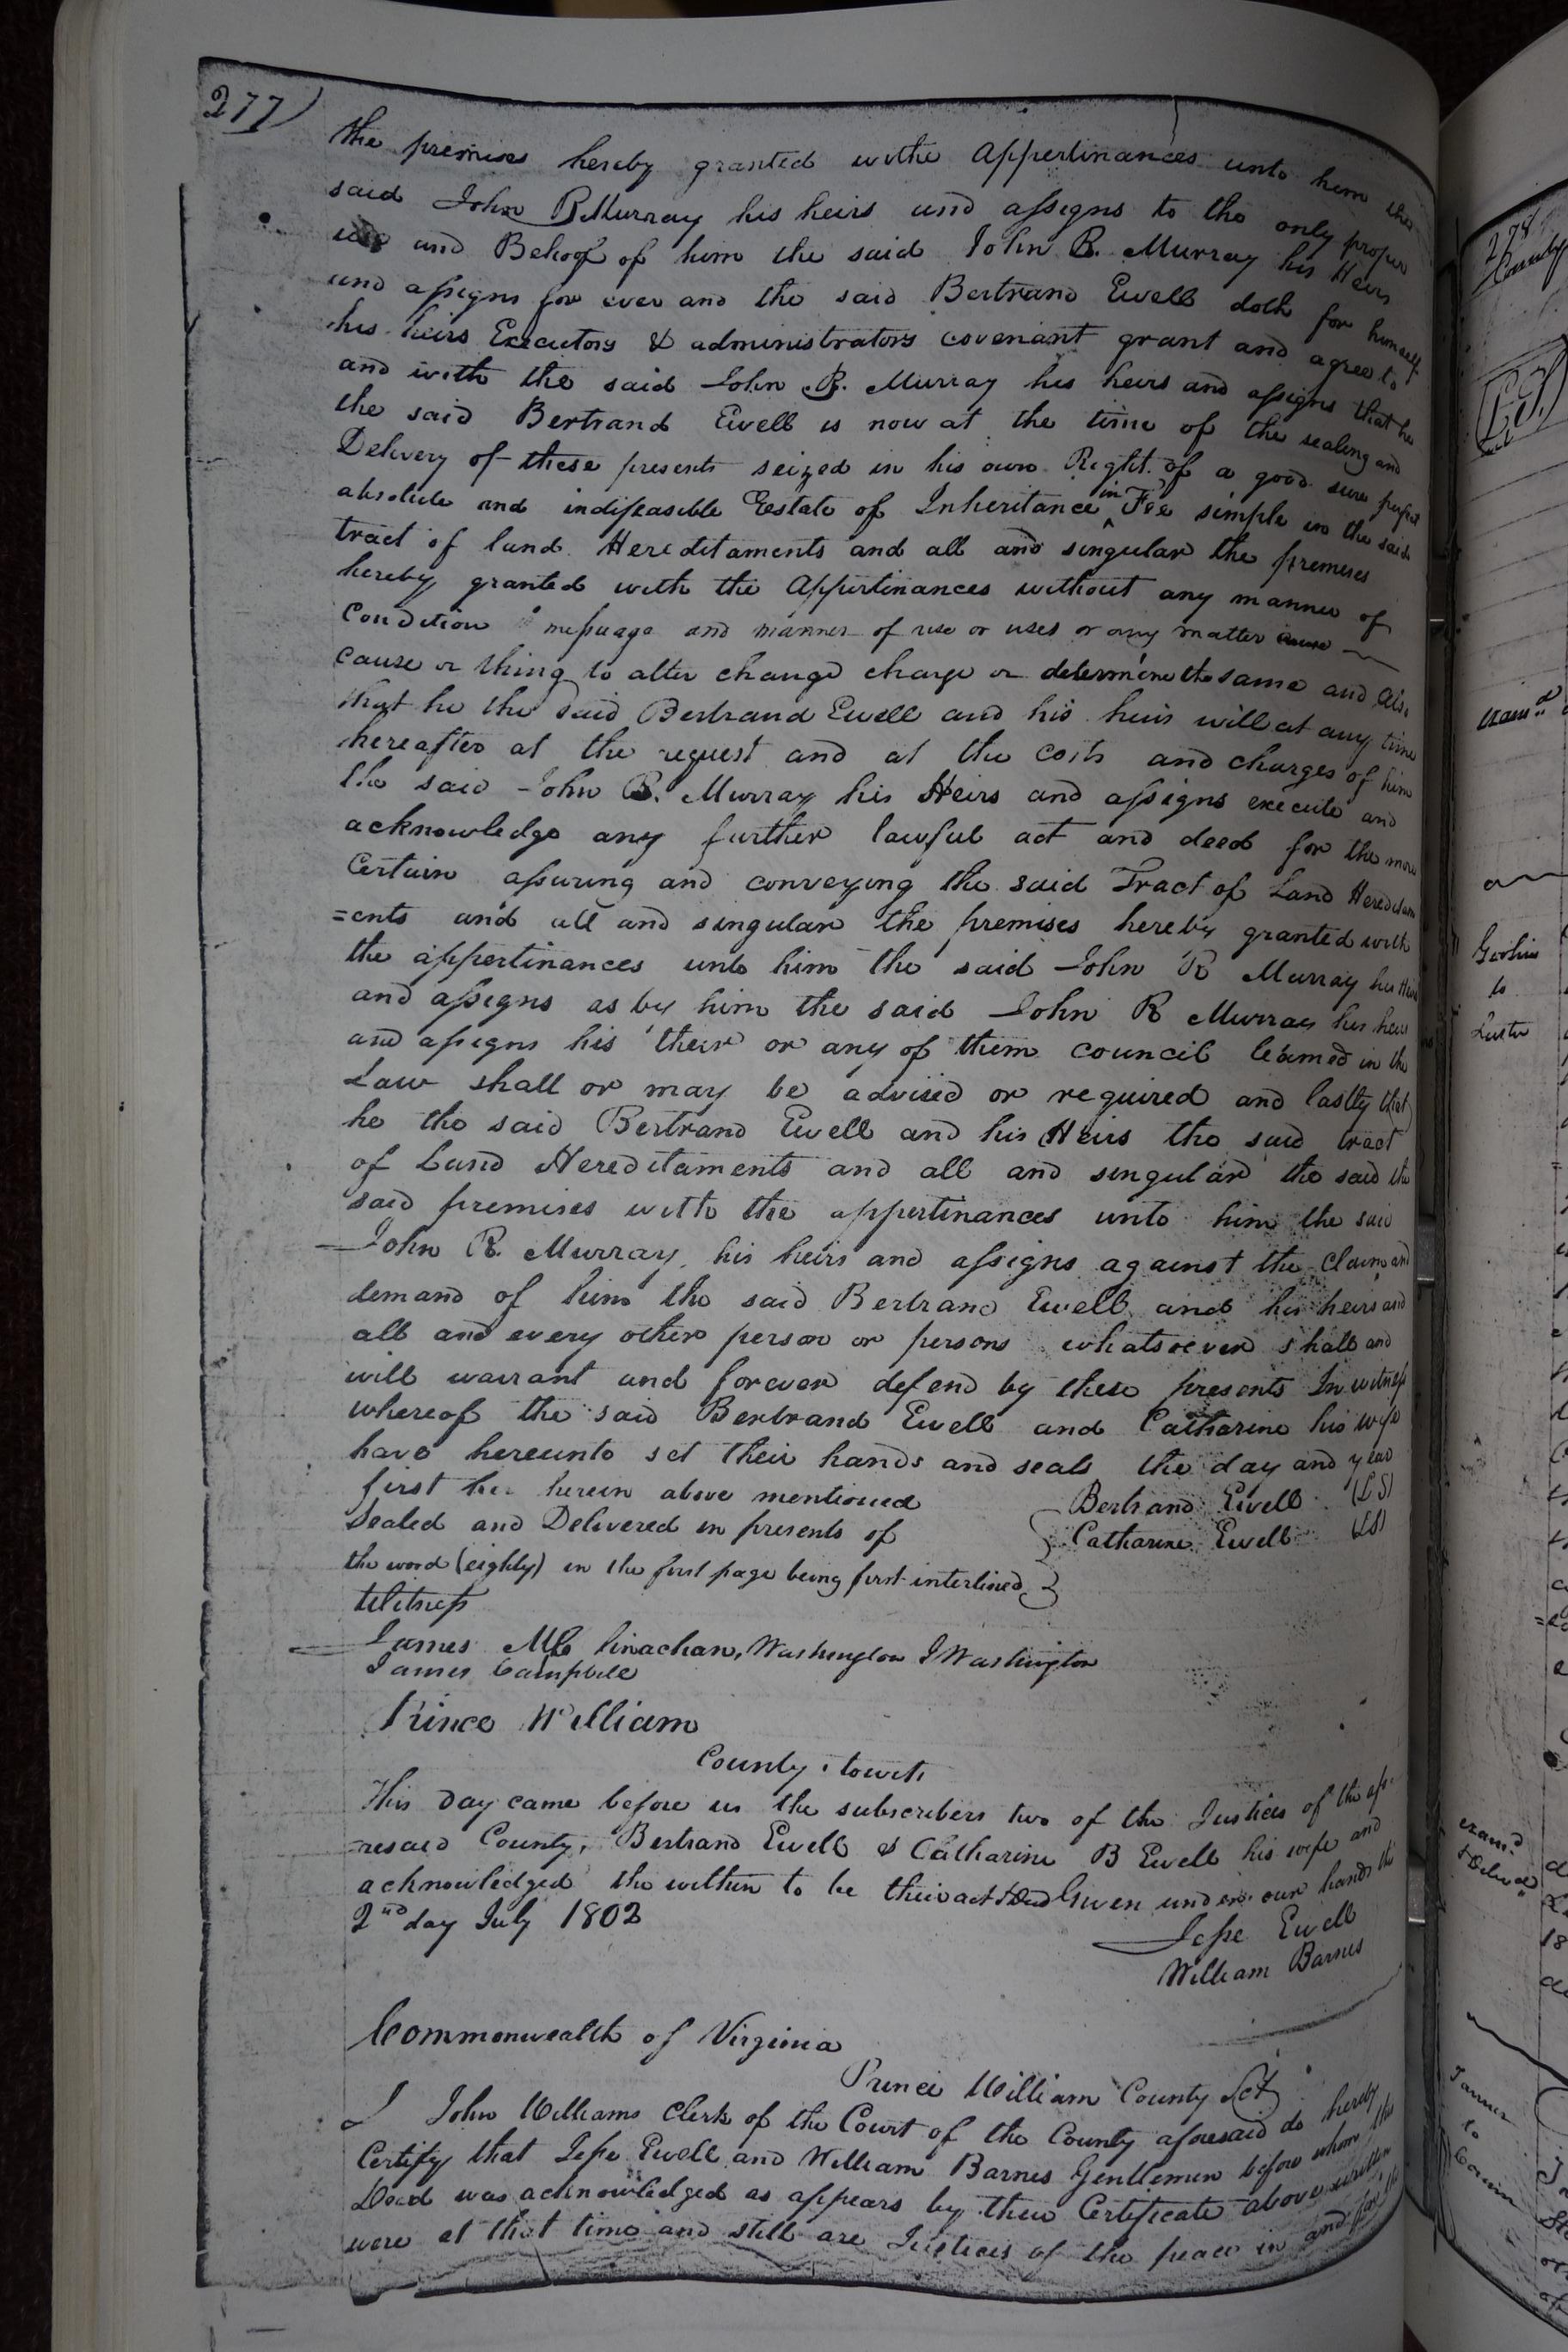 277)
the premises hereby granted withe Appertinances unto him the
said John R Murray his heirs and assigns to the only proper
use and Behoof of him the said John R. Murray his Heirs
and assigns for ever and the said Bertrand Ewell doth for himself
his heirs Executors & administrators covenant grant and agree to
and with the said John R. Murray his heirs and assigns that he
the said Bertrand Ewell is now at the time of the sealing and
Delivery of these presents seized in his own Right of a good sure perfect
absolute and indifeasible Eestate of Inheritance in Fee simple in the said
tract of land Hereditaments and all and singular the premeses
hereby granted with the Appertinances without any manner of
Condition messuage and manner of use or uses or any matter cause
cause or thing to alter change charge or determine the same and also
that he the said Bertrand Ewell and his heirs will at any time
hereafter at the request and at the costs and charges of him
the said John R. Murray his Heirs and assigns execute and
acknowledge any further lawful act and deed for the more
Certain assuring and conveying the said Tract of Land Hereditam
=ents and all and singular the premises hereby granted with
the appertinances unto him the said John R Murray his Heirs
and assigns as by him the said John R Murray his heirs
and assigns his their or any of them council learned in the
Law shall or may be advised or required and lastly that
he the said Bertrand Ewell and his Heirs the said tract
of Land Hereditaments and all and singular the said the
said premises with the appertinances unto him the said
John R. Murray his heirs and assigns against the Claim and
demand of him the said Bertrand Ewell and his heirs and
all and every other person or persons whatsoever shall and
will warrant and forever defend by these presents In witness
whereof the said Bertrand Ewell and Catharine his wife
have hereunto set their hands and seals the day and year
first her herein above mentioned Bertrand Ewell (LS)
Sealed and Delivered in presents of } Catharine Ewell (LS)
the word (eighty) in the first page being first interlined }
Witness
James Linachan, Washington J Washington
James Campbell
Prince William
County towit
This day came before us the subscribers two of the Justices of the afo
=resaid County, Bertrand Ewell & Catharine B Ewell his wife and
acknowledged the within to be their act & Deed Given under our hands this
2nd day July 1802
Jesse Ewell
William Barnes
Commonwealth of Virginia
Prince William County Sct
I John Williams Clerk of the Court of the County aforesaid do hereby
Certify that Jesse Ewell and William Barnes Gentlemen before whom this
Deed was acknowledged as appears by their Certificate above written
were at that time and still are Justices of the peace in and for the
278
County
Exam.d
to
Luster
Exam.d
& Deliv.d
Tanner
to